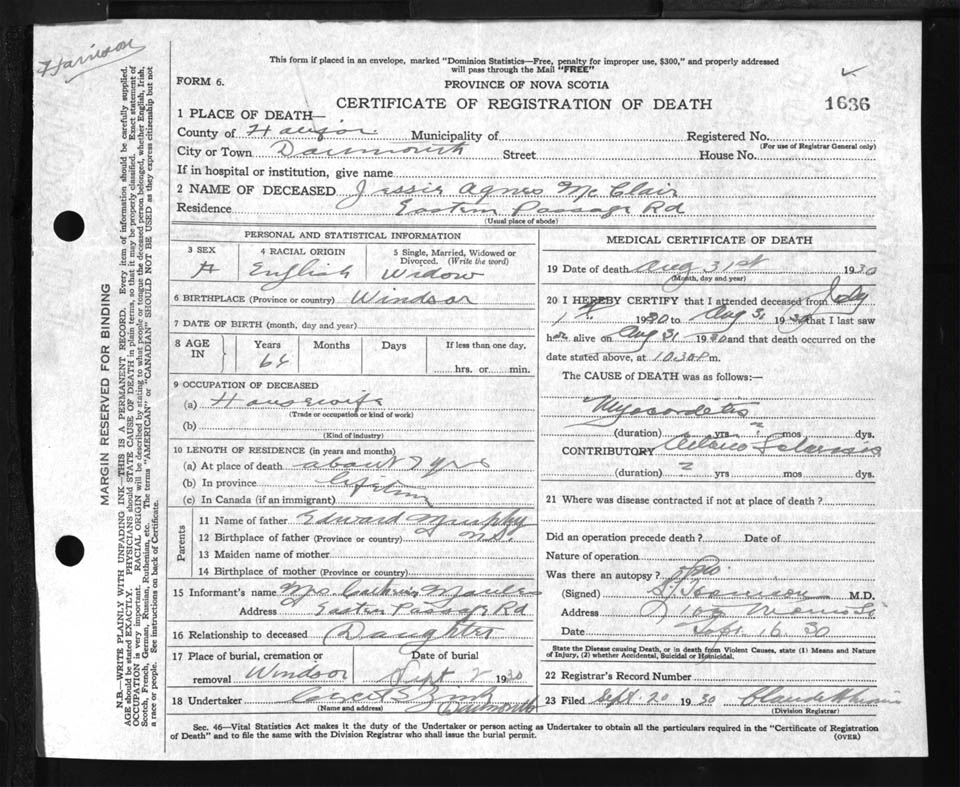 Harrison
This form if placed in an envelope, marked "Dominion Statistics—Free, penalty for improper use, $300," and properly addressed
will pass through the Mail "FREE"
FORM 6.
PROVINCE OF NOVA SCOTIA
CERTIFICATE OF REGISTRATION OF DEATH
1636
1 PLACE OF DEATH—
County of Halifax Municipality of Registered No.
(For use of Registrar General only)
City or Town Dartmouth Street House No.
If in hospital or institution, give name
2 NAME OF DECEASED Jessie Agnes McClair
Residence Eastern Passage Rd
(Usual place of abode)
PERSONAL AND STATISTICAL INFORMATION
3 SEX
4 RACIAL ORIGIN English
5 Single, Married, Widowed or
Divorced. (Write the word)
Widow
6 BIRTHPLACE (Province or country) Windsor
7 DATE OF BIRTH (month, day and year)
8 AGE
IN
Years
Months
Days
If less than one day.
hrs. or min.
9 OCCUPATION OF DECEASED
(a) Housewife
(Trade or occupation or kind of work)
(b)
(Kind of industry)
10 LENGTH OF RESIDENCE (in years and months)
(a) At place of death about 7 yrs
(b) In province lifetime
(c) In Canada (if an immigrant)
Parents
11 Name of father Edward Murphy
12 Birthplace of father (Province or country) N.S.
13 Maiden name of mother
14 Birthplace of mother (Province or country)
15 Informant's name Mrs
Address Eastern Passage Rd
16 Relationship to deceased Daughter
17 Place of burial, cremation or
removal Windsor
Date of burial
Sept 2 1930
18 Undertaker Dartmouth
(Name and address)
MEDICAL CERTIFICATE OF DEATH
19 Date of death Aug 31st 1930
(Month, day and year)
20 I HEREBY CERTIFY that I attended deceased from July
1st 1930 to Aug 31 1930 that I last saw
her alive on Aug 31 1930 and that death occurred on the
date stated above, at 10.30 P.m.
The CAUSE of DEATH was as follows:—
Myocarditis
(duration) yrs ? mos dys.
CONTRIBUTORY Arterio Sclerosis
(duration) ? yrs mos dys.
21 Where was disease contracted if not at place of death?
Did an operation precede death? Date of
Nature of operation
Was there an autopsy? No.
(Signed) Harrison M.D.
Address
Date Sept. 16. 30
State the Disease causing Death, or in death from Violent Causes, state (1) Means and Nature
of Injury, (2) whether Accidental, Suicidal or Homicidal.
22 Registrar's Record Number
23 Filed Sept. 20 1930
(Division Registrar)
Sec. 46—Vital Statistics Act makes it the duty of the Undertaker or person acting as Undertaker to obtain all the particulars required in the "Certificate of Registration
of Death" and to file the same with the Division Registrar who shall issue the burial permit. (OVER)
MARGIN RESERVED FOR BINDING
N.B.—WRITE PLAINLY WITH UNFADING INK—THIS IS A PERMANENT RECORD. Every item of information should be carefully supplied.
AGE should be stated EXACTLY. PHYSICIANS should STATE CAUSE OF DEATH in plain terms, so that it may be properly classified. Exact statement of
OCCUPATION is very important. RACIAL ORIGIN will be described by stating to what people or tongue the deceased person belonged, whether English, Irish,
Scotch, French, German, Russian, Ruthenian, etc. The terms "AMERICAN" or "CANADIAN" SHOULD NOT BE USED as they express citizenship but not
a race or people. See instructions on back of Certificate.